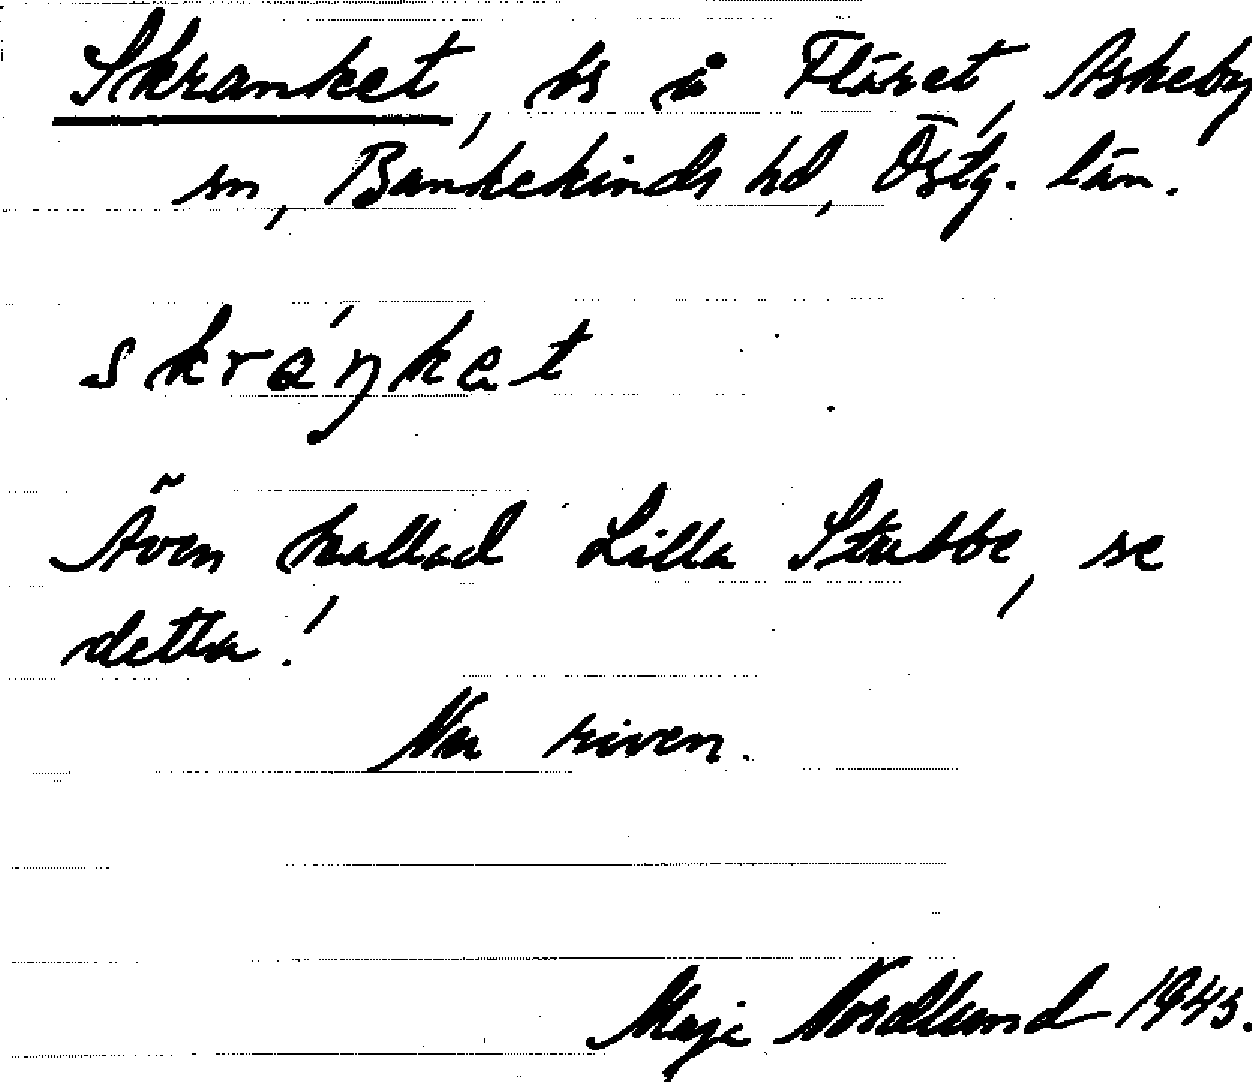 Skranket, bs å Fläret, Askeby
sn, Bankekinds hd, Östg. län.
skráŋkət
Även kallad Lilla Stubbe, se
detta!
Nu riven.
Maja Nordlund 1943.